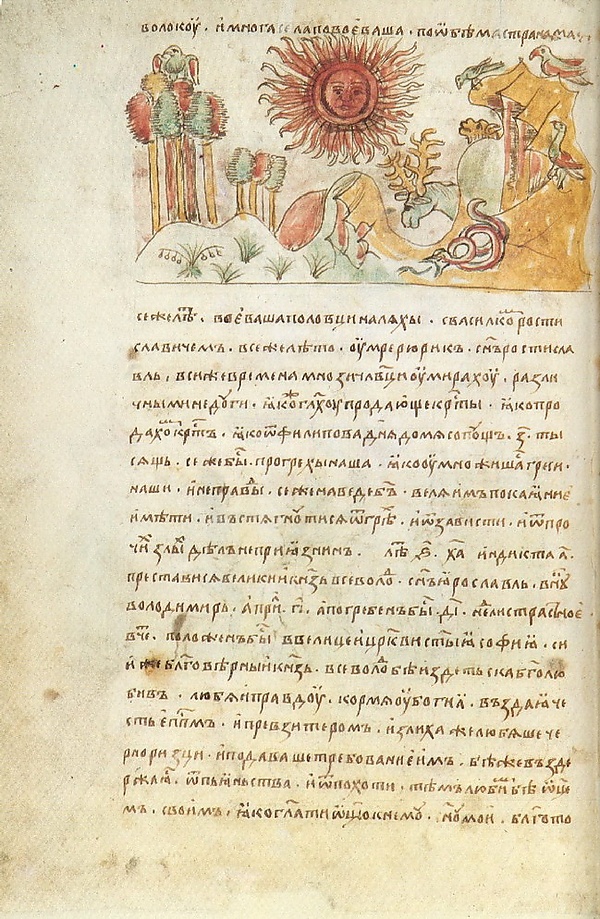 волокоу . и многа села повоеваша . по ѿбѣма странама
се же лѣт̑ . воеваша половци на ляхы . с василком рости
славичемъ . все же лѣто . оумре рюрикъ . сн҃ъ ростисла
вль . в си же времена мнози члв҃ци оумирахоу . разли
чными недуги . ꙗкож гл҃ахоу продающе крс҃ты . ꙗко про
дахом крс҃тъ . ꙗко ѿ филипова дн҃я до мясопощъ . з҃ . ты
сящь . се же быс҃ . по грехы наша . ꙗко оумножишас҃ греси .
наши . и неправды . се же наведе б҃ъ . веля имъ покаꙗние
имѣти . и въстягноутися ѿ грѣх . и ѿ зависти . и ѿ про
чих злых дѣлъ неприꙗзнинъ . лѣт индикта
преставися великии кн҃зь всеволод . сн҃ъ ꙗрославль . внꙋк
володимирь . април . г҃і . а погребенъ быс҃ . д҃і . нел страстное
вче . положенъ быс҃ в велицеи црк҃ви ст҃ыꙗ софиꙗ . си
и же блг҃оверныи кн҃зь . всеволод бѣ издетьска бг҃олю
бивъ . любя правдоу . кормя оубогыꙗ . въздаꙗ че
сть епс҃пмъ . и превзитеромъ . излиха же любяше че
рноризци . и подаваше требование имъ . бѣ же въздe
ржася . ѿ пьꙗньства . и ѿ похоти . тѣмъ любим бѣ ѿц҃е
мъ . своимъ . ꙗко гл҃ати ѿц҃ю к нему . сн҃у мои . блг҃о то